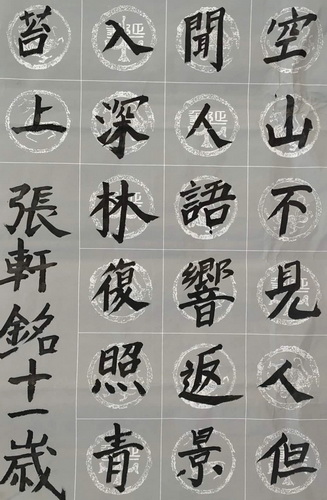 空山不見人但
聞人語響返景
入深林復照青
苔上
張軒銘十一歲